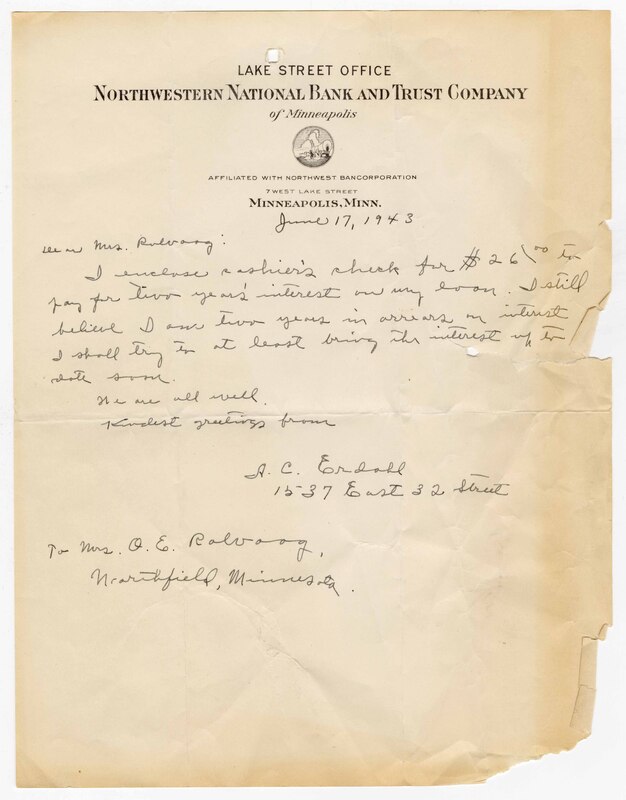 LAKE STREET OFFICE
NORTHWESTERN NATIONAL BANK AND TRUST COMPANY
of Minneapolis
AFFILIATED WITH NORTHWEST BANCORPORATION
7 WEST LAKE STREET
MINNEAPOLIS, MINN.
June 17, 1943
Dear Mrs. Rolvaag:
I enclose cashier's check for $26.00 to
pay for two year's interest on my loan. I still
believe I am two years in arrears on interest
I shall try to at least bring the interest up to
date soon.
We are all well.
Kindest greetings from
A. C. Erdahl
1537 East 32 Street
To Mrs. O. E. Rolvaag,
Northfield, Minnesota.